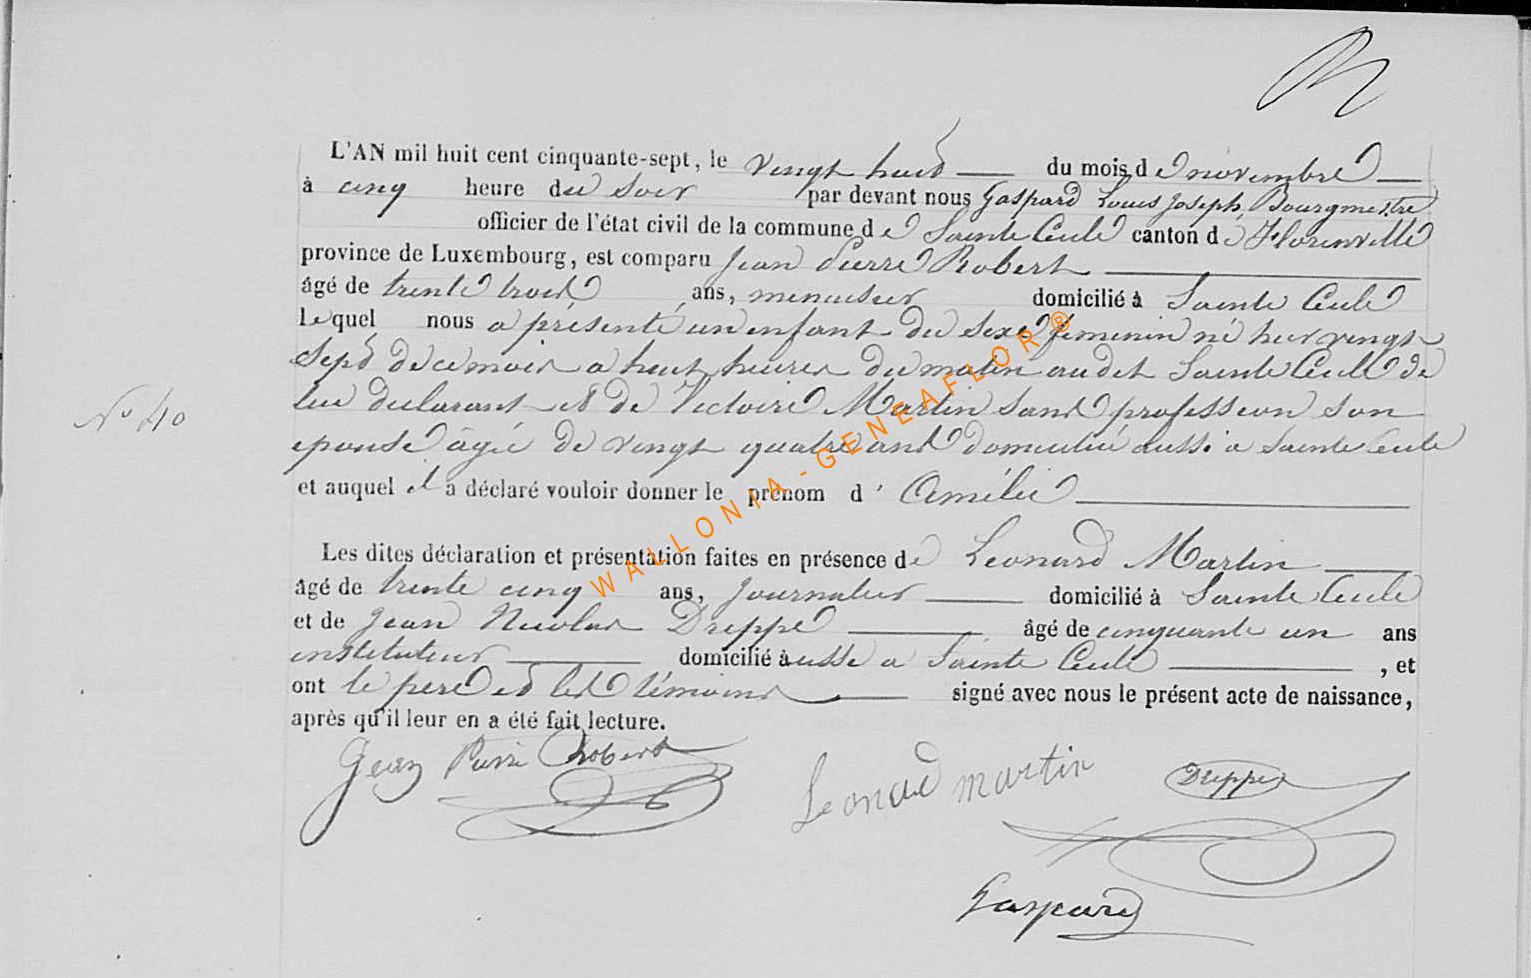 L'AN mil huit cent cinquante-sept, le vingt huit du mois de novembre
à cinq heure du soir par devant nous Gaspard Louis Joseph, Bourgmestre
officier de l'état civil de la commune de Sainte Cecile canton de Florenville
province de Luxembourg, est comparu Jean Pierre Robert
âgé de trente trois ans, menuisier domicilié à Sainte Cecile
lequel nous a présenté un enfant du sexe féminin né hier vingt
sept de ce mois a huit heures du matin audit Sainte Cecile de
lui declarant et de Victoire Martin sans profession son
epouse âgée de vingt quatre ans domiciliée aussi a Sainte Cecile
et auquel il a déclaré vouloir donner le prénom d' Amélie
Les dites déclaration et présentation faites en présence de Leonard Martin
âgé de trente cinq ans, journalier domicilié à Sainte Cecile
et de Jean Nicolas Dreppe âgé de cinquante un ans
instituteur domicilié aussi a Sainte Cecile, et
ont le pere et les témoins signé avec nous le présent acte de naissance,
après qu'il leur en a été fait lecture.
N° 40
Jean Pierre Robert
Leonard martin
Dreppe
Gaspard
WALLONIA - GENEAFLOR ®